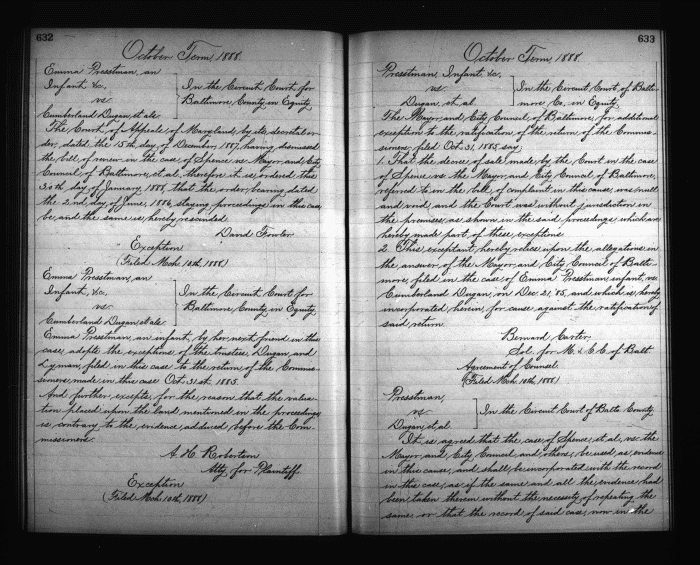 632
October Term 1888.
Emma Presstman, an
Infant, &c.
vs.
Cumberland Dugan, et als.
In the Circuit Court for
Baltimore County, in Equity.
The Court of Appeals of Maryland, by its decretal or-
der, dated the 15th day of December, 1887, having dismissed
the bill of review in the case of Spence vs. Mayor and City
Council of Baltimore, et al. therefore it is ordered this
30th day of January, 1888, that the order, bearing dated
the 2nd day of June, 1886, staying proceedings in this case
be, and the same is hereby rescinded.
David Fowler
Exception
(Filed Mch. 10th, 1888)
Emma Presstman, an
Infant, &c.
vs.
Cumberland Dugan et als.
In the Circuit Court for
Baltimore County, in Equity.
Emma Presstman, an infant, by her next friend in this
case, adopts the exceptions of the trustees, Dugan and
Lyman, filed in this case to the return of the Commis-
sioners made in this case Oct. 31st. 1885.
And further, excepts, for the reason that the valua-
tion placed upon the land mentioned in the proceedings
is contrary to the evidence adduced before the Com-
missioners.
A. H. Robertson
Atty. for Plaintiff.
Exception
(Filed Mch. 10th, 1888)
633
October Term 1888.
Presstman, Infant, &c.
vs.
Dugan, et. al.
In the Circuit Court of Balti-
more Co., in Equity.
The Mayor and City Council of Baltimore, for additional
exception to the ratification of the return of the Commis-
sioners, filed Oct. 31, 1885, say;
1. That the decree of sale made by the Court in the case
of Spence vs. the Mayor, and City Council of Baltimore,
referred to in the bill of complaint in this cause, was null
and void, and the Court was without jurisdiction in
the premises, as shown in the said proceedings which are
hereby made part of these exceptions.
2. This exceptant hereby relies upon the allegations in
the answer of the Mayor, and City Council of Balti-
more, filed in the case of Emma Presstman, infant, vs.
Cumberland Dugan, on Dec. 21, '85, and which is hereby
incorporated herein, for cause against the ratification of
said return.
Bernard Carter,
Sol. for M. & C. C. of Balt.
Agreement of Counsel
(Filed Mch. 10th, 1888)
Presstman,
vs.
Dugan, et. al.
In the Circuit Court of Balto. County.
It is agreed that the case of Spence, et al, vs. the
Mayor and City Council and others, be used as evidence
in this cause, and shall be incorporated with the record
in this case, as if the same and all the evidence had
been taken therein without the necessity of repeating the
same, or that the record of said case, now in the